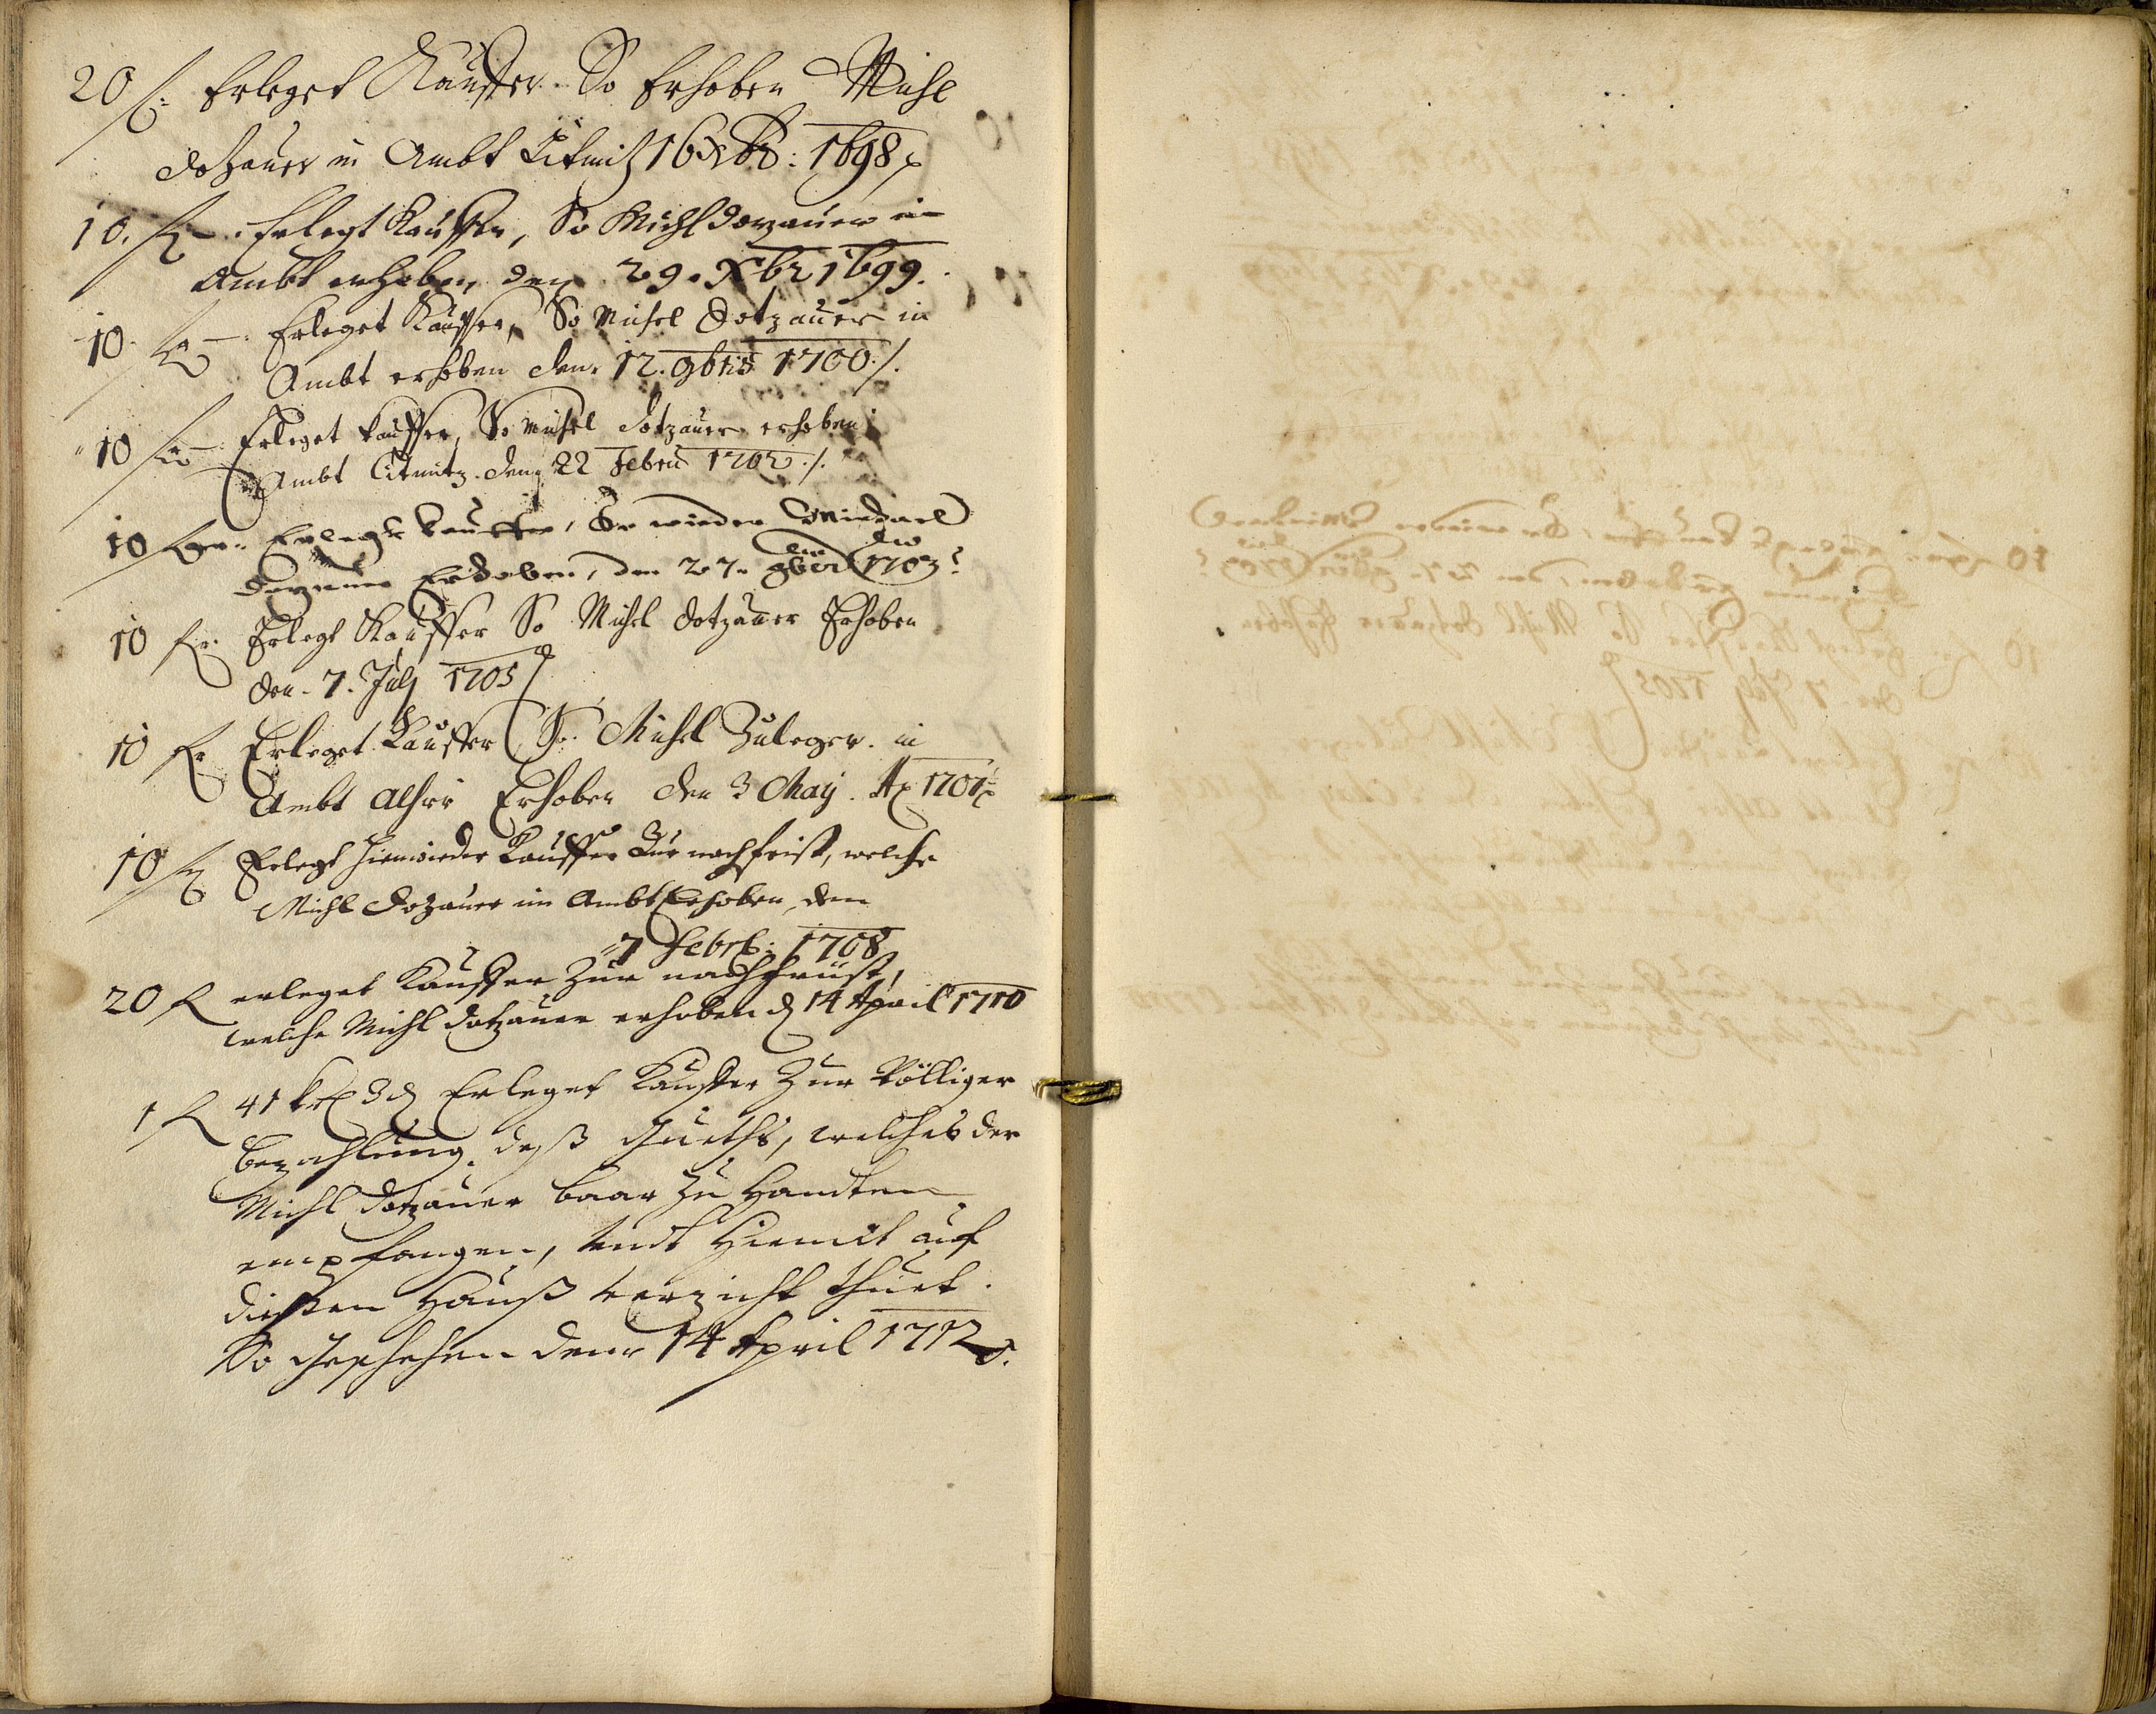 20 f: Erleget Kauffer. So Erhoben Michl
Dotzauer in Ambt Litmitz 16 Xbr: 1698
10. f. Erlegt Kauffer, So Michl Dozauer in
Ambt erhoben den 29. Xbr 1699.
10. f. Erleget Kauffer, So Michel Dotzauer in
Ambt erhoben den. 12. 9bris 1700 ./.
10 f. Erleget kauffer, So Michel Dotzauer erhoben
Ambt Litmitz. den 22 Febru 1702 ./.
10 f. Erlegt kauffer, So wieder Michael
Dozauer Erhoben, den 27. 9ber 1703
10 fr: Erlegt Kauffer So Michel Dotzauer Erhoben
den. 7. July 1705
10 fr Erleget Kauffer So. Michel Zuleger. in
Ambt Erhoben den 3 May. Ao 1707
10 f Erlegt hiewieder Kauffer Zur nachfrist, welche
Michl Dozauer im Ambt Erhoben, den
7 Febr: 1708
20 f erleget Kauffer Zur nachfrüst,
welche Michl Dotzauer erhoben d 14 April 1710
1 f 41 kr 3 d Erleget Kauffer Zur Völliger
bezahlung. deß Gueths, welches der
Michl Dotzauer baar zu Handten
empfangen, undt Hiemit auf
dießen Hauß verzicht thuet.
So Geschehen den 14 April 1712